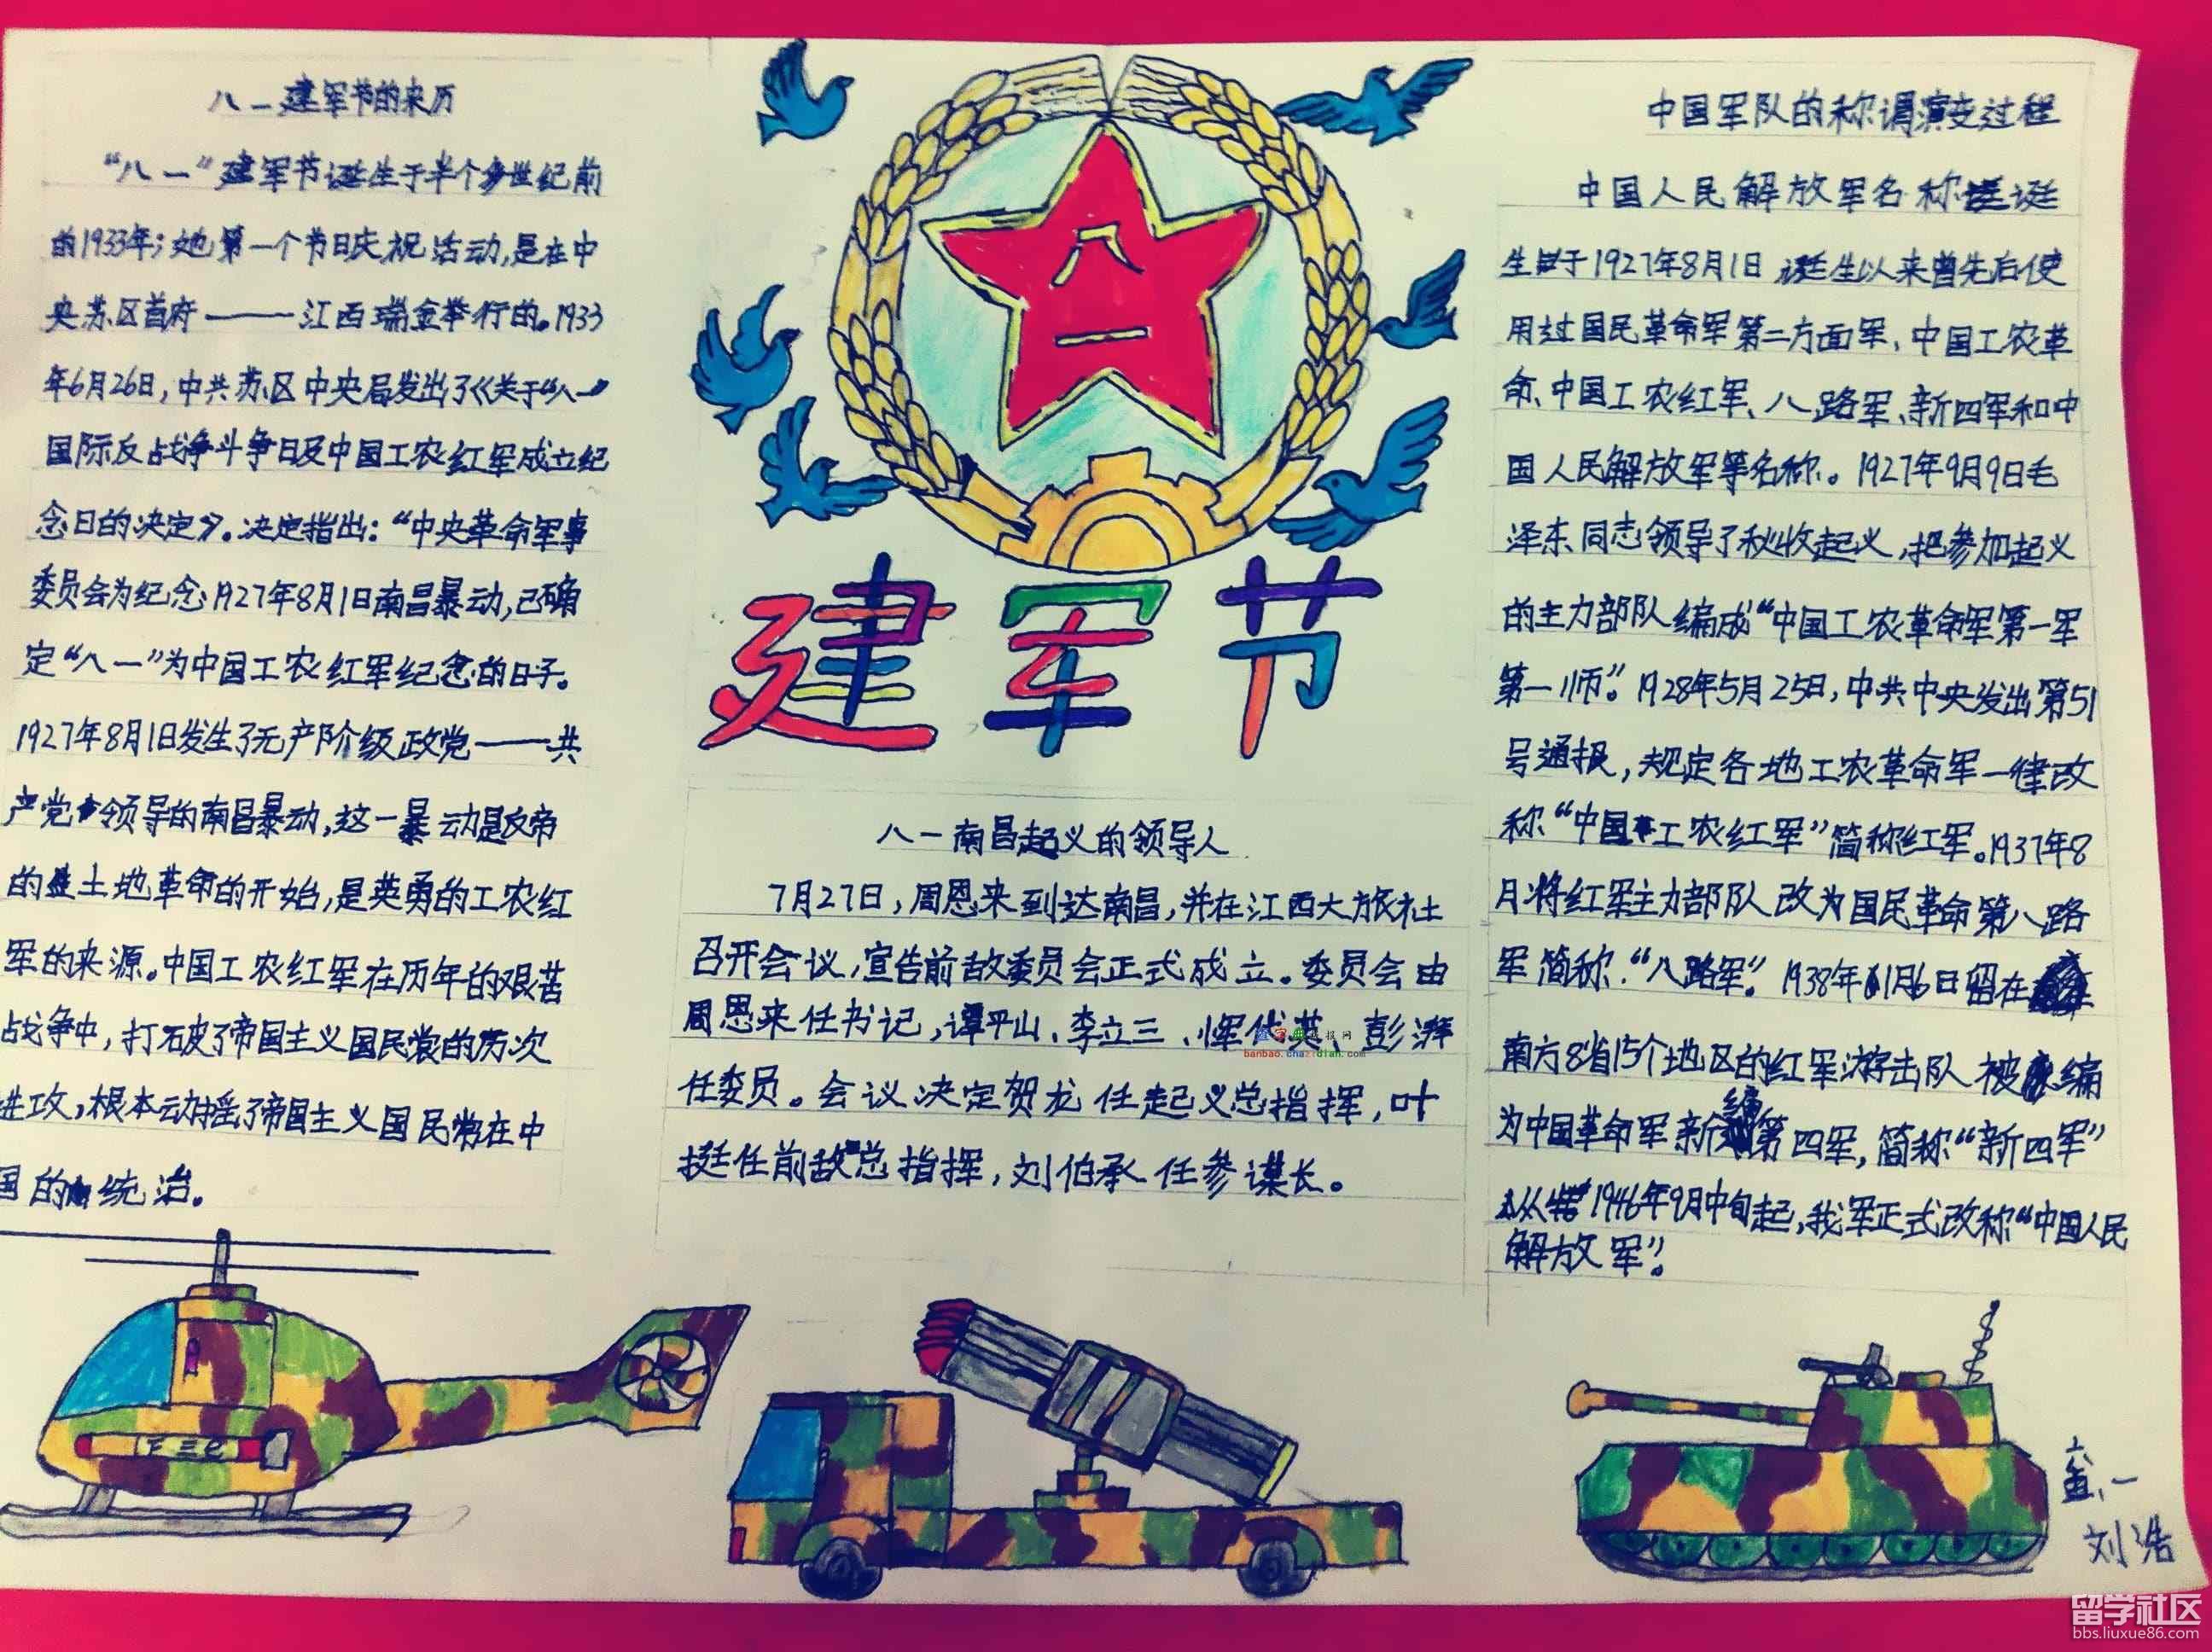 八一建军节的来历
“八一”建军节诞生于半个多世纪前
的1933年;她第一个节日庆祝活动,是在中
央苏区首府——江西瑞金举行的。1933
年6月26日,中共苏区中央局发出了《关于“八一”
国际反战争斗争日及中国工农红军成立纪
念日的决定》。决定指出:“中央革命军事
委员会为纪念1927年8月1日南昌暴动,已确
定“八一”为中国工农红军纪念的日子。
1927年8月1日发生了无产阶级政党——共
产党领导的南昌暴动,这一暴动是反帝
的土地革命的开始,是英勇的工农红
军的来源。中国工农红军在历年的艰苦
战争中,打破了帝国主义国民党的历次
进攻,根本动摇了帝国主义国民党在中
国的统治。
八一
建军节
八一南昌起义的领导人
7月27日,周恩来到达南昌,并在江西大旅社
召开会议,宣告前敌委员会正式成立。委员会由
周恩来任书记,谭平山、李立三、恽代英、彭湃
任委员。会议决定贺龙任起义总指挥,叶
挺任前敌总指挥,刘伯承任参谋长。
banbao.chazidian.com
中国军队的称谓演变过程
中国人民解放军名称诞
生于1927年8月1日 诞生以来曾先后使
用过国民革命军第二方面军、中国工农革
命、中国工农红军、八路军、新四军和中
国人民解放军等名称。1927年9月9日毛
泽东同志领导了秋收起义,把参加起义
的主力部队编成“中国工农革命军第一军
第一师”。1928年5月25日,中共中央发出第51
号通报,规定各地工农革命军一律改
称“中国工农红军”简称红军。1937年8
月将红军主力部队改为国民革命第八路
军简称“八路军”。1938年1月6日留在
南方8省15个地区的红军游击队被编
为中国革命军新编第四军,简称“新四军”
从1946年9月中旬起,我军正式改称“中国人民
解放军”。
六、一
刘浩
留学社区
bbs.liuxue86.com